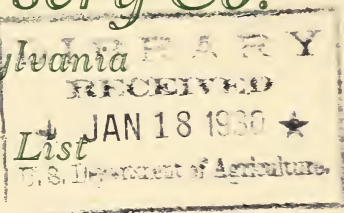 sery Co.
LIBRARY
ylvania
RECEIVED
★ JAN 18 1930 ★
List
U. S. Department of Agriculture.